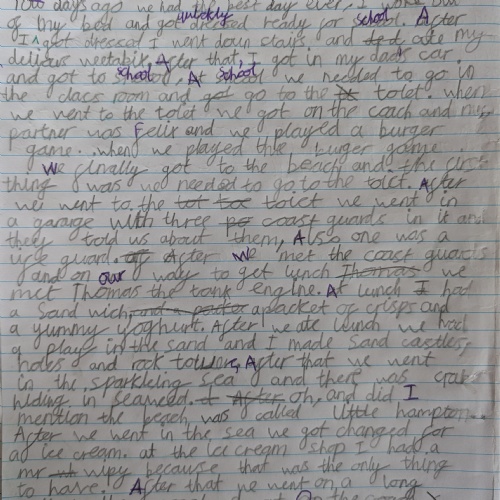 days ago we had the best day ever. I woke out
of my bed and got quickly dressed ready for school. After
I got dressed I went down stays and ate my
delious weetabix. After that, I got in my dads car.
and got to school. At school we needed to go in
the class room and go to the tolet. when
we went to the tolet we got on the coach and my
partner was Felix and we played a burger
game. when we played the burger game
we finally got to the beach and the first
thing was we needed to go to the tolet. After
we went to the tolet we went in
a garage with three coast guards in it and
they told us about them, Also one was a
life guard. After we met the coast guards
and on our way to get lunch we
met Thomas the tank engine. At lunch I had
a Sand wich a packet of crisps and
a yummy yoghurt. After we ate lunch we had
a play in the sand and I made Sand castles,
holes and rock towers, After that we went
in the sparkleing sea and there was crabs
hiding in seaweed. oh, and did I
mention the beach was called little hampton.
After we went in the sea we got changed for
an ice cream. at the ice cream shop I had a
mr wipy because that was the only thing
to have. After that we went on a long